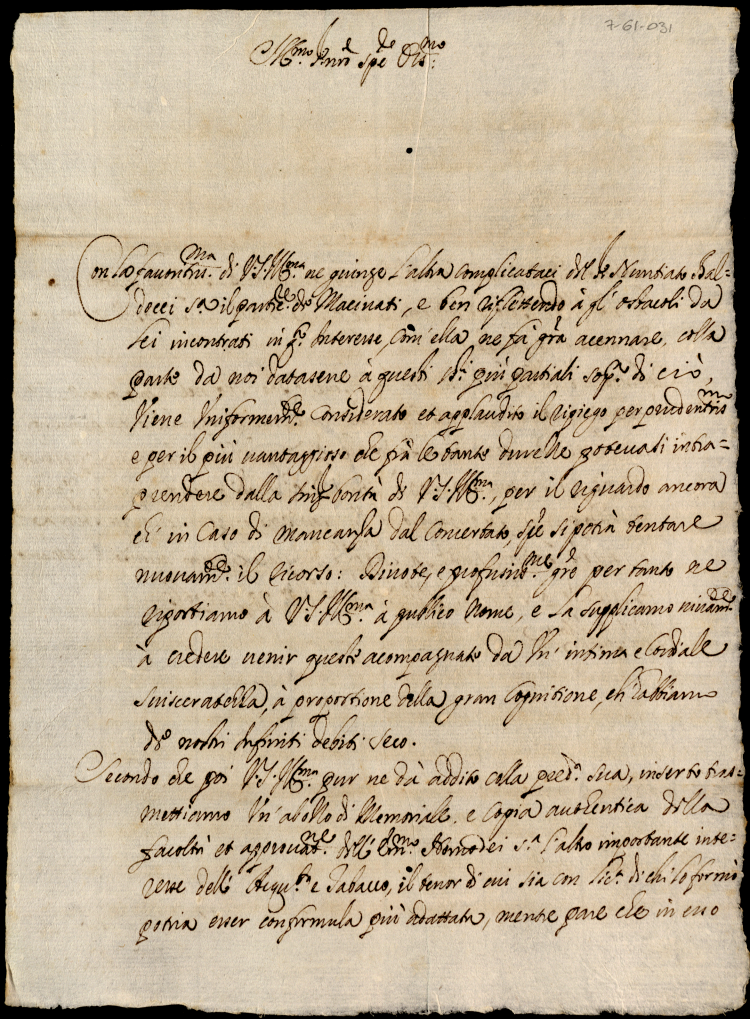 7-61-031
Ill.mo Pnro͂l spe Oss.mo
Con la fauoritis.ma di V.S.Ill.ma ne giunge l'altra complicataci del Sr Nuntiato Bal=
docci s.a il partic.re de Macinati, e ben riflettendo à gl' ostacoli da
Lei incontrati in q.to Interesse, com' ella ne fà gr̃a accennare, colla
parte da noi datasene à questi SS.ri più partiali sop.a di ciò,
Viene Vniformem.te considerato et applaudito il ripiego per prudentis.mo
e per il più vantaggioso che frà le tante durezze poteuasi intra=
prendere dalla somma bontà di V.S.Ill.ma, per il riguardo ancora
ch' in caso di mancanza dal Concertato, spe si potrà tentare
nuouam.te il ricorso: Diuote, e profusis.me gr̃e per tanto ne
riportiamo à V.S.Ill.ma à publico nome, e la supplicamo viuam.te
à credere uenir queste acompagnate da Vn' intima e Cordiale
suisceratezza, à proportione della gran Cognitione, ch' abbiamo
de nostri Infiniti debiti seco.
Secondo che poi V.S.Ill.ma pur ne dà addito colla pred.a sua, inserto tras=
mettiamo Vn' abozzo di Memoriale, e Copia autentica della
facoltà et approuat.ne dell' Em.mo Homodei s.a l'altro importante inte=
resse dell' Acqu.te e Tabacco, il tenor di cui sia con lic.a di chi lo formò
potria esser confirmula più adattata, mentre pare che in esso